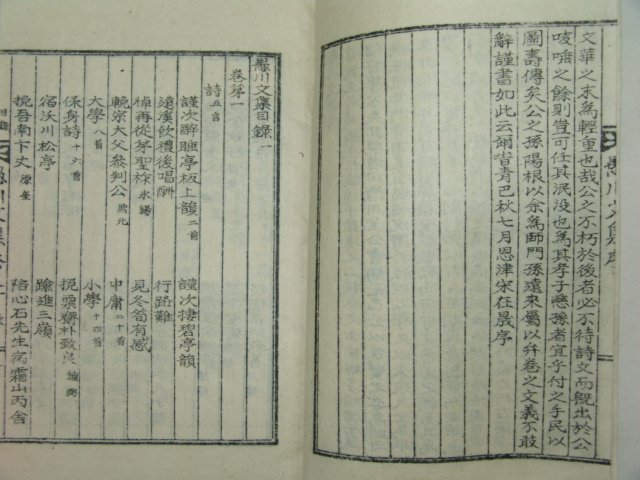 文華之末爲輕重也哉公之不朽於後者必不待詩文而旣出於公
咳唾之餘則豈可任其泯没也爲其孝子慈孫者宜乎付之手民以
圖壽傳矣公之孫陽根以余爲師門孫遠來屬以弁卷之文義不敢
辭謹書如此云爾旹靑巳秋七月恩津宋在晟序
愚川文集序
愚川文集目錄一
卷第一
詩五言
謹次辭 亭板上韻二首
謹次棲碧亭韻
遠溪飮禮後唱酬
行路難
悼再從茅聖
見冬筍有感
輓宗大父參判公 元
中庸二十首
大學八首
小學十四首
保身詩十六首
挽栗齋朴致良
挽吾南卞丈
踰進三嶺
宿沃川松亭
陪心石先生宿霜山丙舍
愚川文集